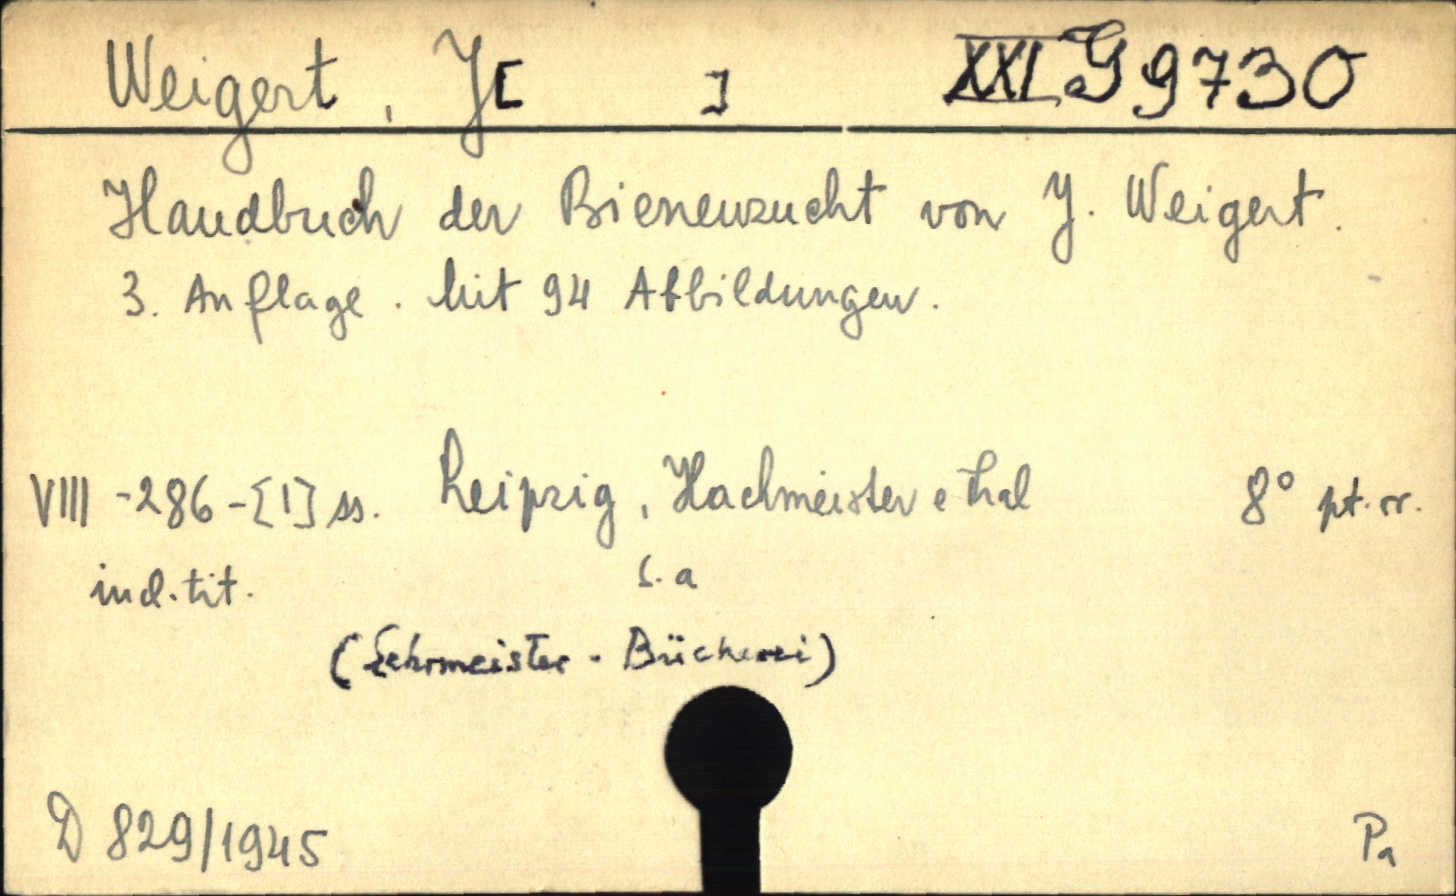 Weigert, J[ ] XXI. G 9730
Handbuch der Bienenzucht von J. Weigert.
3. Auflage. Mit 94 Abbildungen.
VIII -286-[1] ss. Leipzig, Hachmeister e Thal 8° pt. rr.
ind. tit. s. a
(Lehrmeister-Bücherei)
D 829/1945 Pa